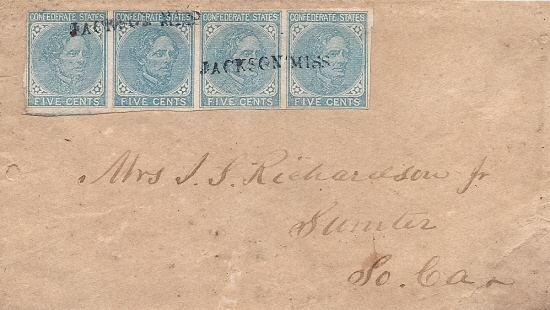 CONFEDERATE STATES CONFEDERATE STATES CONFEDERATE STATES CONFEDERATE STATES
JACKSON MISS
JACKSON MISS
FIVE CENTS FIVE CENTS FIVE CENTS FIVE CENTS
Mrs J. S. Richardson Jr
Sumter
So. Ca